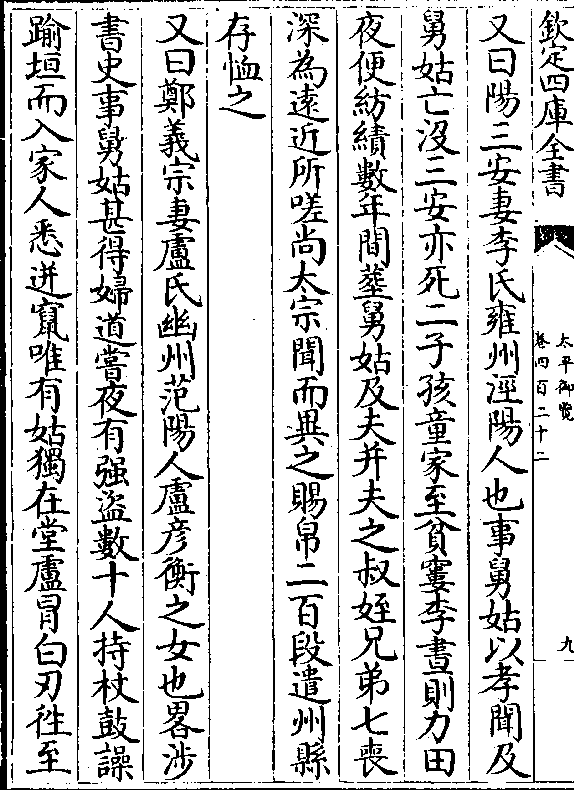 欽定四庫全書
太平御覽
卷四百二十二
九
又曰陽三安妻李氏雍州涇陽人也事舅姑以孝聞及
舅姑亡沒三安亦死二子孩童家至貧寠李晝則力田
夜便紡績數年間塟舅姑及夫并夫之叔姪兄弟七喪
深為遠近所嗟尚太宗聞而異之賜帛二百段遣州縣
存恤之
又曰鄭義宗妻盧氏幽州范陽人盧彦衡之女也畧涉
書史事舅姑甚得婦道嘗夜有强盜數十人持杖鼓譟
踰垣而入家人悉迸竄唯有姑獨在堂盧冒白刃徃至